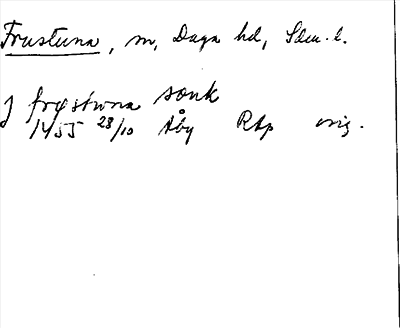 Frustuna, sn, Daga hd, Sdm. l.
J frøstwna sonk
1455 28/10 Åby RAp orig.